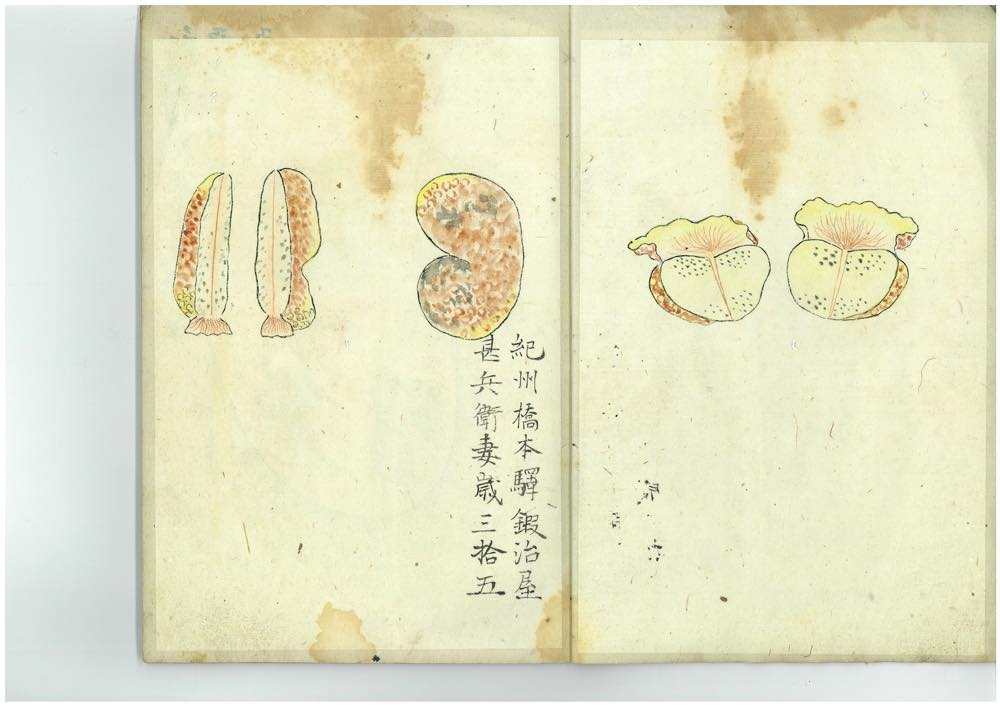 紀州橋本驛鍜冶屋
甚兵衛妻歳三拾五